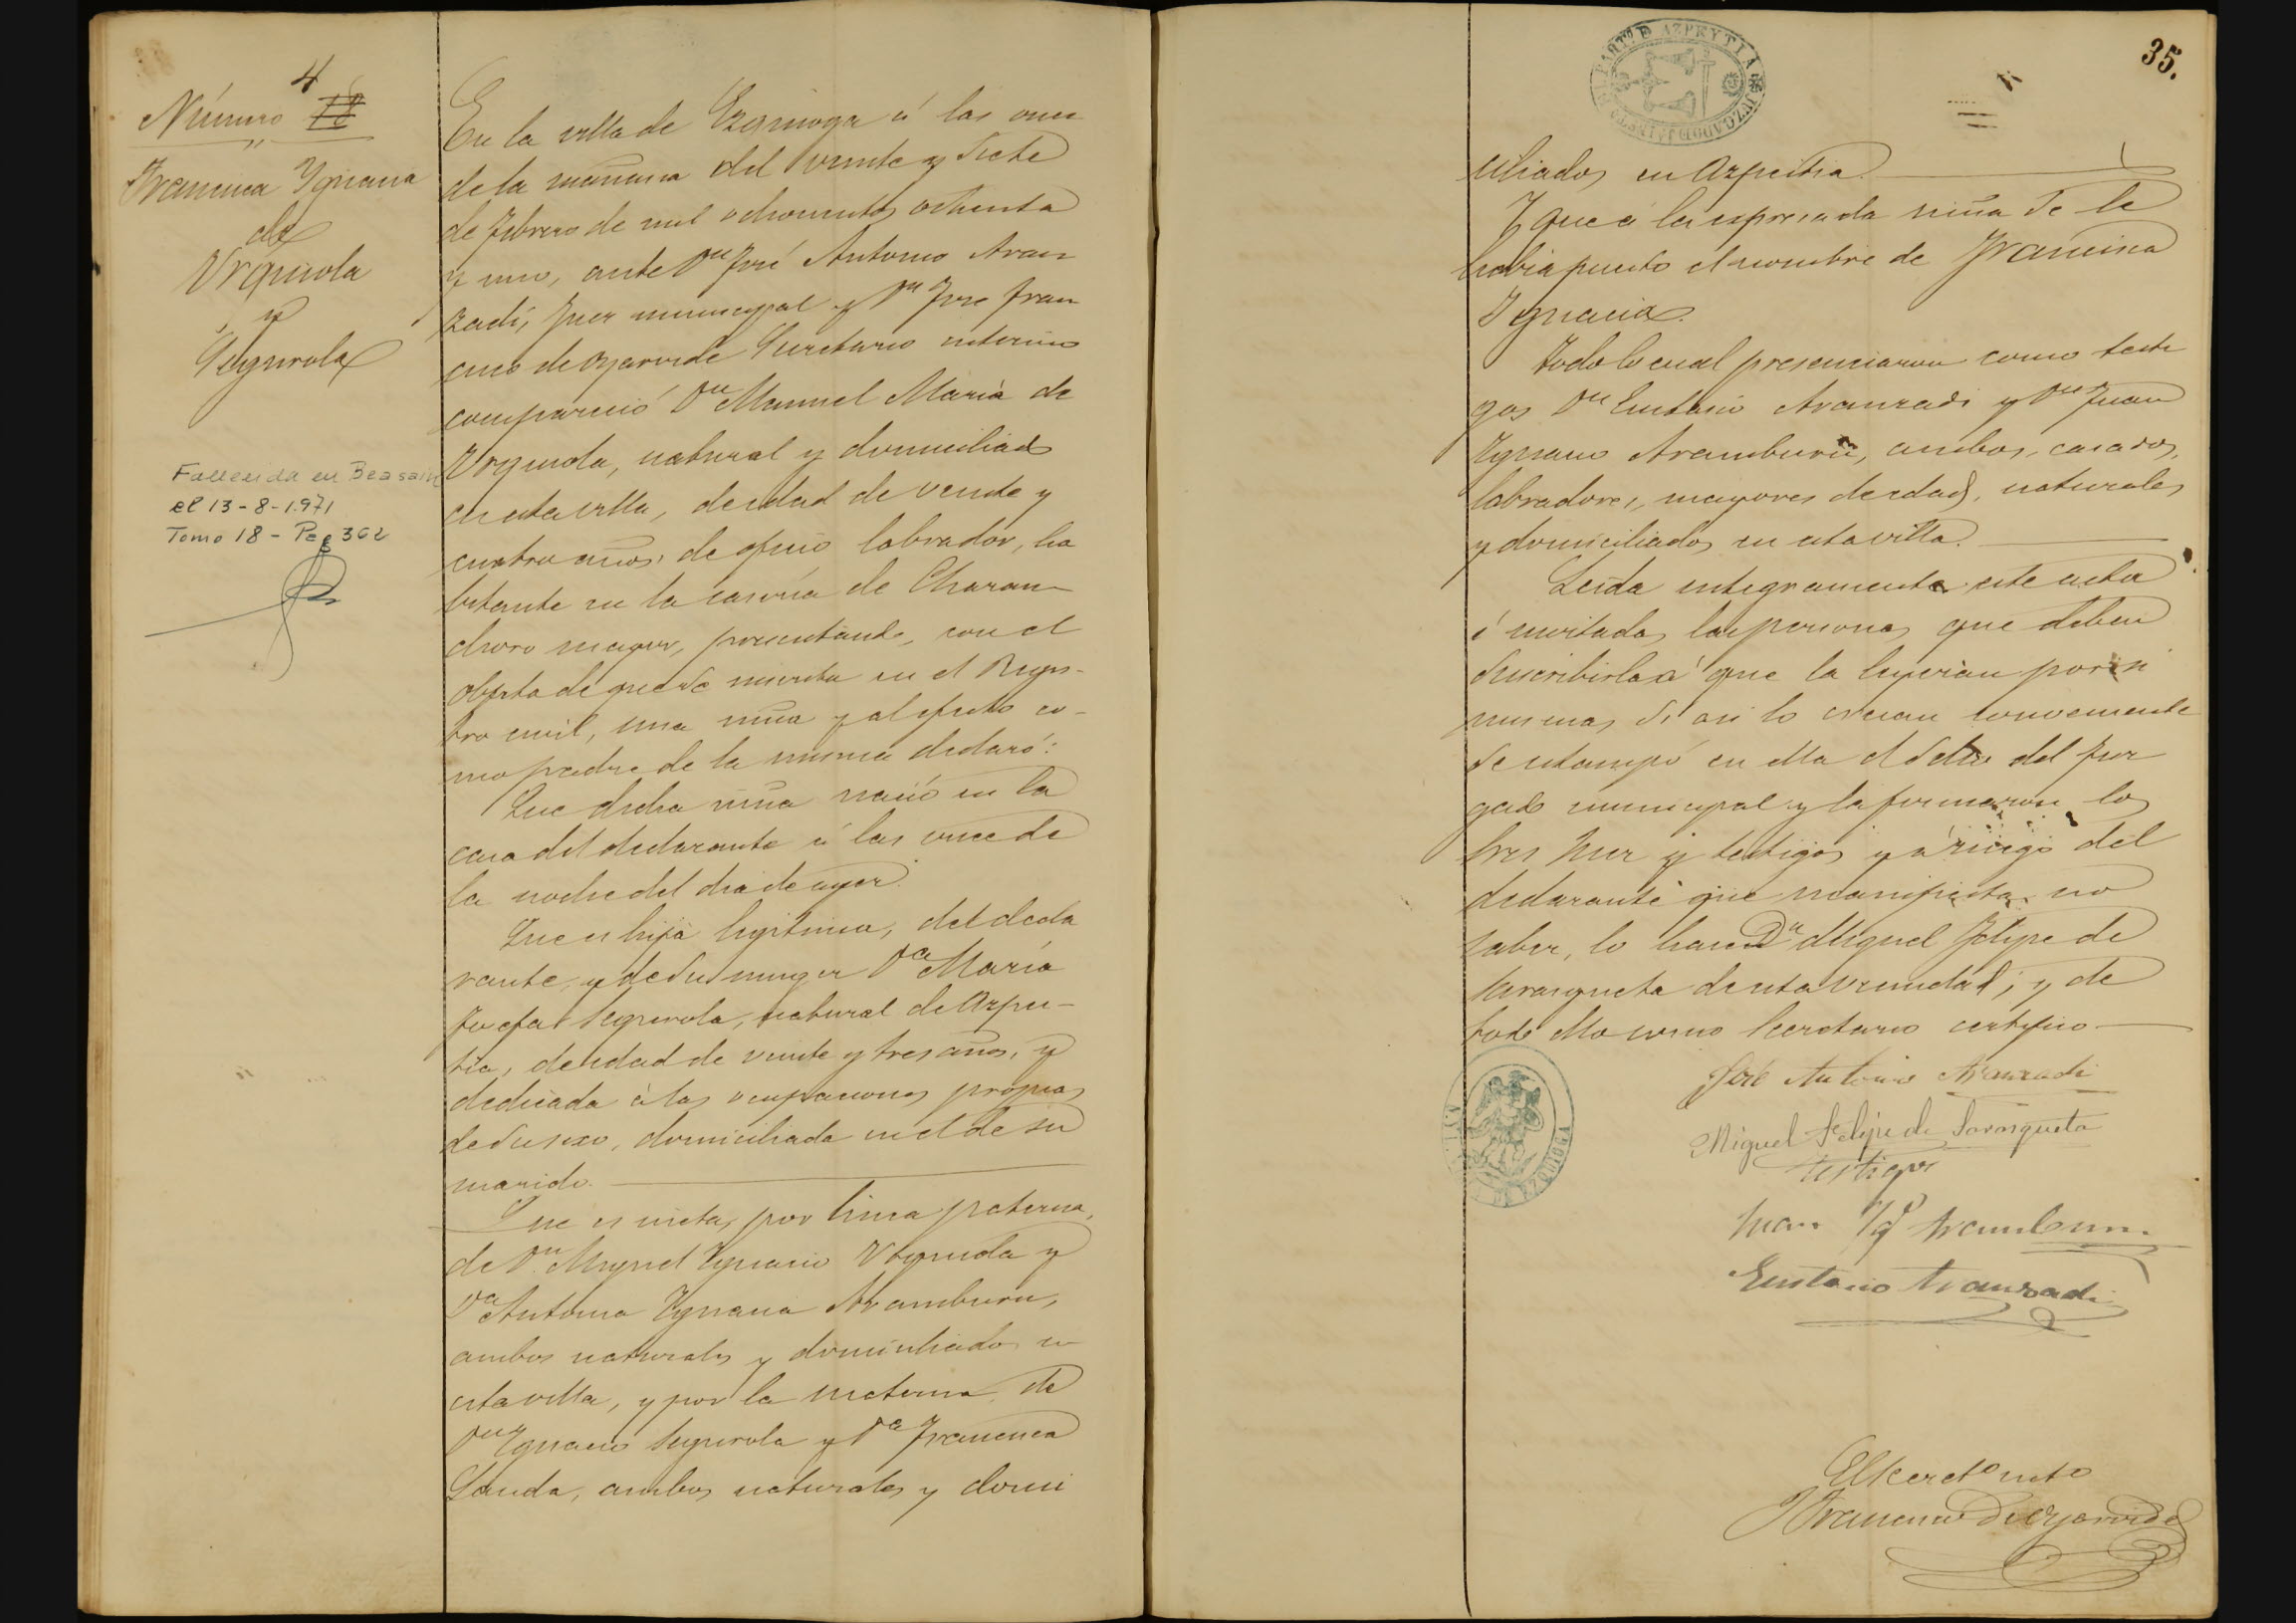 4
Número 18
Francisca Ygnacia
de
Urquiola
y
Segurola
Fallecida en Beasain
el 13-8-1.971
Tomo 18 - Pag 362
En la villa de Ezquioga á las once
de la mañana del veinte y siete
de febrero de mil ochocientos ochenta
y uno, ante Dn José Antonio Aran
zadi, Juez municipal y Dn José Fran
cisco de Oyarvide Secretario interino
compareció Dn Manuel María de
Urquiola, natural y domiciliado
en esta villa, de edad de veinte y
cuatro años, de oficio labrador, ha
bitante en la casería de Charan
dioro mayor, presentando, con el
objeto de que se inscriba en el Regis-
tro civil, una niña y al efecto co-
mo padre de la misma declaró:
Que dicha niña nació en la
casa del declarante á las once de
la noche del dia de ayer.
Que es hija legitima, del decla
rante, y de su muger Da María
Josefa Segurola, natural de Azpei-
tia, de edad de veinte y tres años, y
dedicada á las ocupaciones propias
de su sexo, domiciliada en el de su
marido.
Que es nieta, por linea paterna,
de Dn Miguel Ygnacio Urquiola y
Da Antonia Ygnacia Aramburu,
ambos naturales y domiciliados en
esta villa, y por la materna de
Dn Ygnacio Segurola y Da Francisca
Landa, ambos naturales y domi
35.
PARTo DE AZPEYTIA
JUZGADO DE 1a INSTA
ciliados en Azpeitia.
Y que á la expresada niña se le
habia puesto el nombre de Francisca
Ygnacia.
Todo lo cual presenciaron como testi
gos Dn Eustasio Aranzadi y Dn Juan
Ygnacio Aramburu, ambos, casados,
labradores, mayores de edad, naturales
y domiciliados en esta villa.
Leida integramente este acta
é invitadas las personas que deben
suscribirla á que la leyeran por si
mismas si asi lo creian conveniente
se estampó en ella el sello del Juz
gado municipal y la firmaron los
Sres Juez y testigos y á ruego del
declarante que manifiesta no
saber, lo hace Dn Miguel Felipe de
Sarasqueta de esta vecindad; y de
todo ello como Secretario certifico
José Antonio Aranzadi
Miguel Felipe de Sarasqueta
testigos
Juan Ygo Aramburu
Eustasio Aranzadi
DE EZQUIOGA
El Secreto into
Francisco de Oyarvide